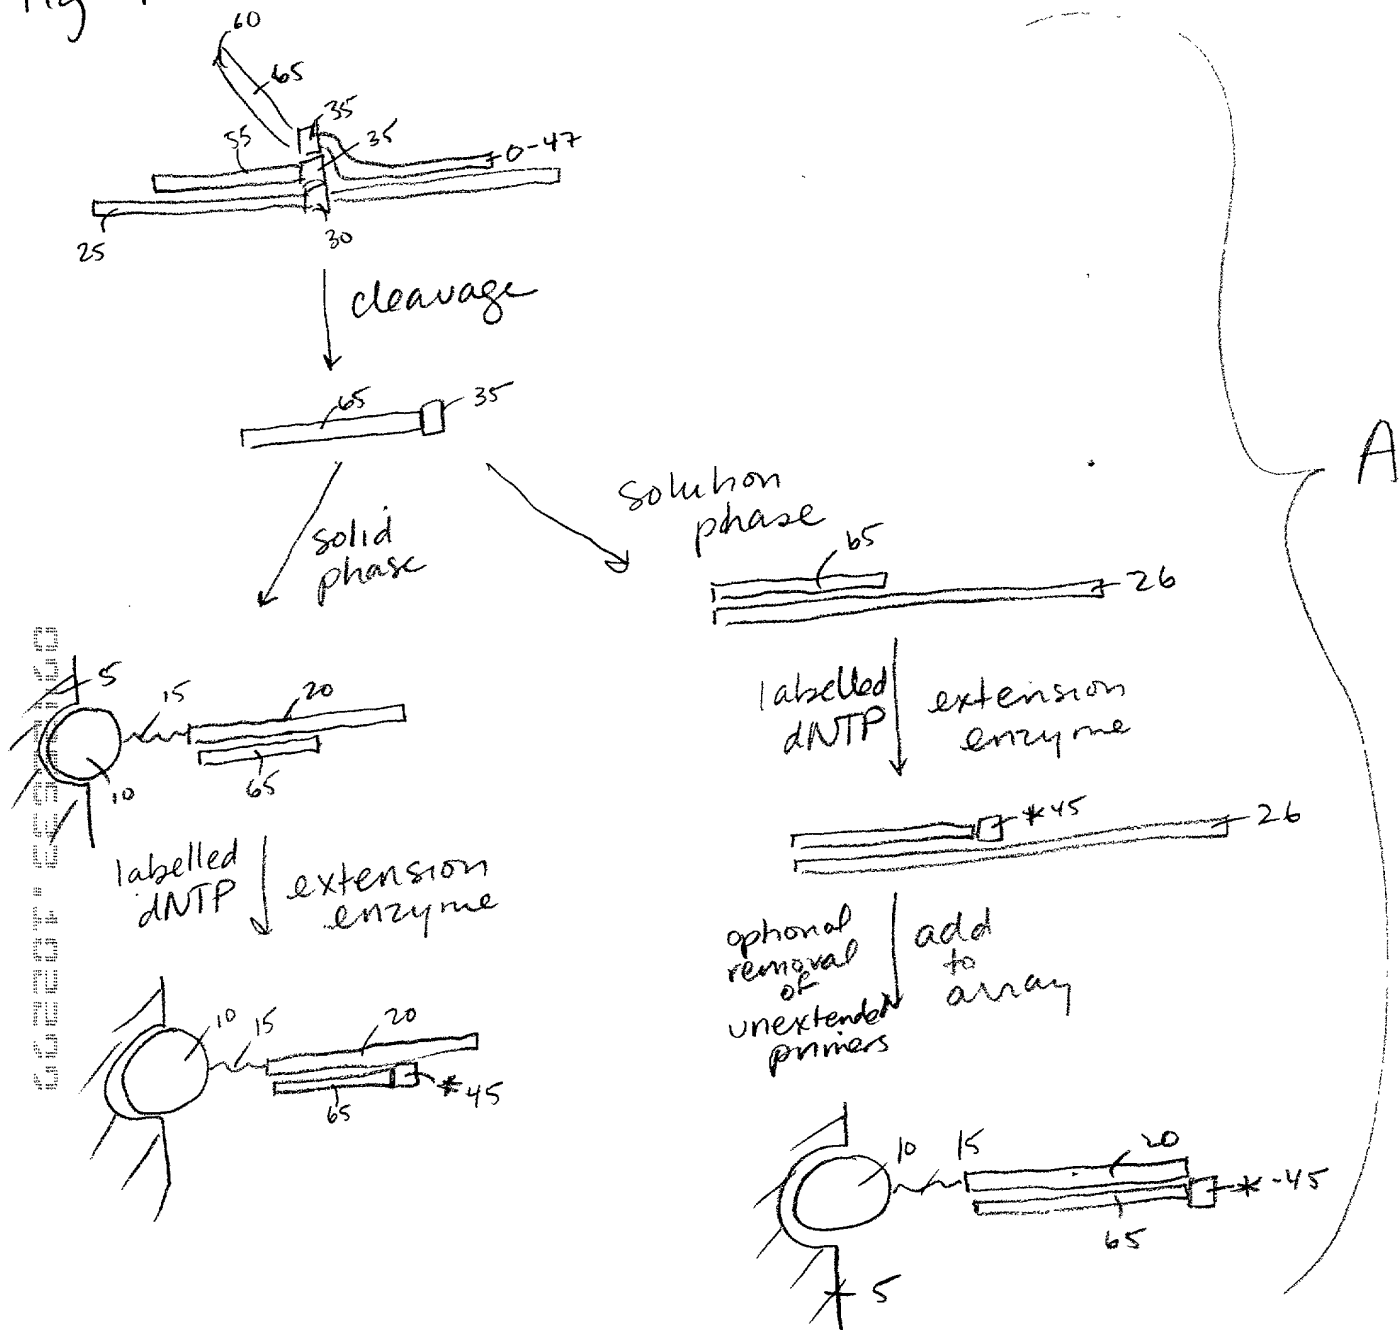 Fig
60
65
35
55
35
0-47
25
30
cleavage
65
35
solid
phase
solution
phase
65
26
5
15
20
10
65
labelled
dNTP
extension
enzyme
labelled
dNTP
extension
enzyme
*45
26
optional
removal
of
unextended
primers
add
to
array
10
15
20
65
*45
10
15
20
*-45
65
5
A